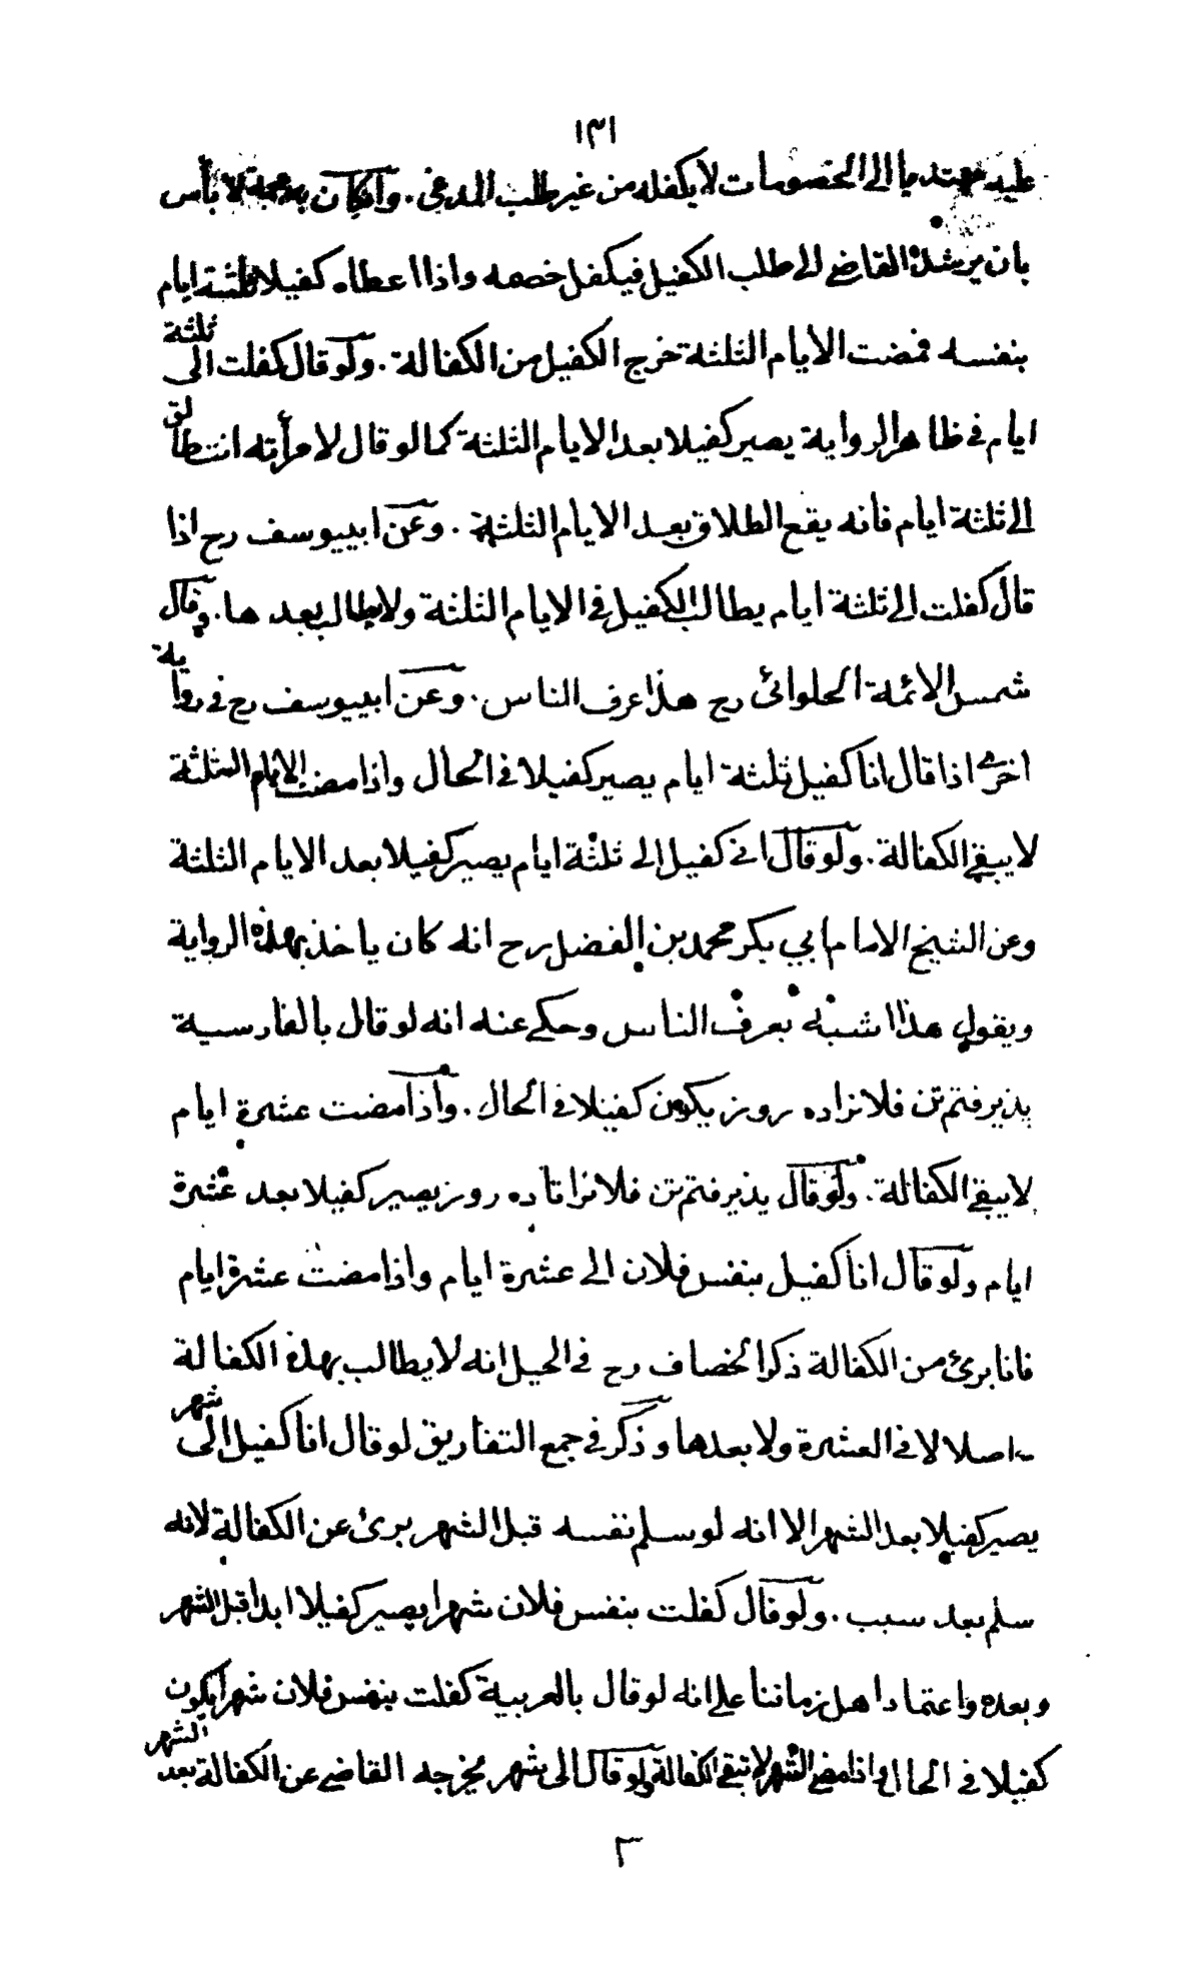 ١٣١
عليه مهتديا الى الخصومات لا يكفله من غير طلب المدعي . وان كان به عجمة لا بأس
بان يرشده القاضي الى طلب الكفيل فيكفل خصمه واذا اعطاه كفيلا ثلثة ايام
بنفسه فمضت الايام الثلثة خرج الكفيل من الكفالة . ولو قال كفلت الى ثلثة
ايام في ظاهر الرواية يصير كفيلا بعد الايام الثلثة كما لو قال لامرأته انت طالق
الى ثلثة ايام فانه يقع الطلاق بعد الايام الثلثة . وعن ابييوسف رح اذا
قال كفلت الى ثلثة ايام يطالب الكفيل في الايام الثلثة ولا يطالب بعد ها . وقال
شمس الائمة الحلوائي رح هذا عرف الناس . وعن ابييوسف رح في رواية
اخرى اذا قال انا كفيل ثلثة ايام يصير كفيلا في الحال واذا مضت الايام الثلثة
لا يبقى الكفالة . ولو قال اني كفيل الى ثلثة ايام يصير كفيلا بعد الايام الثلثة
وعن الشيخ الامام ابي بكر محمد بن الفضل رح انه كان ياخذ بهذه الرواية
ويقول هذا اشبه بعرف الناس وحكي عنه انه لو قال بالفارسية
پذيرفتم تن فلانرا ده روز يكون كفيلا في الحال . واذا مضت عشرة ايام
لا يبقى الكفالة . ولو قال پذيرفتم تن فلانرا تا ده روز يصير كفيلا بعد عشرة
ايام ولو قال انا كفيل بنفس فلان الى عشرة ايام واذا مضت عشرة ايام
فانا بريئ من الكفالة ذكر الخصاف رح في الحيل انه لا يطالب بهذه الكفالة
اصلا لا في العشرة ولا بعدها وذكر في جمع التفاريق لو قال انا كفيل الى شهر
يصير كفيلا بعد الشهر الا انه لو سلم نفسه قبل الشهر برئ عن الكفالة لانه
سلم بعد سبب . ولو قال كفلت بنفس فلان شهرا يصير كفيلا ابدا قبل الشهر
وبعده واعتماد اهل زماننا على انه لو قال بالعربية كفلت بنفس فلان شهرا يكون
كفيلا في الحال واذا مضى الشهر لا تبقى الكفالة ولو قال الى شهر يخرجه القاضي عن الكفالة بعد الشهر
٣